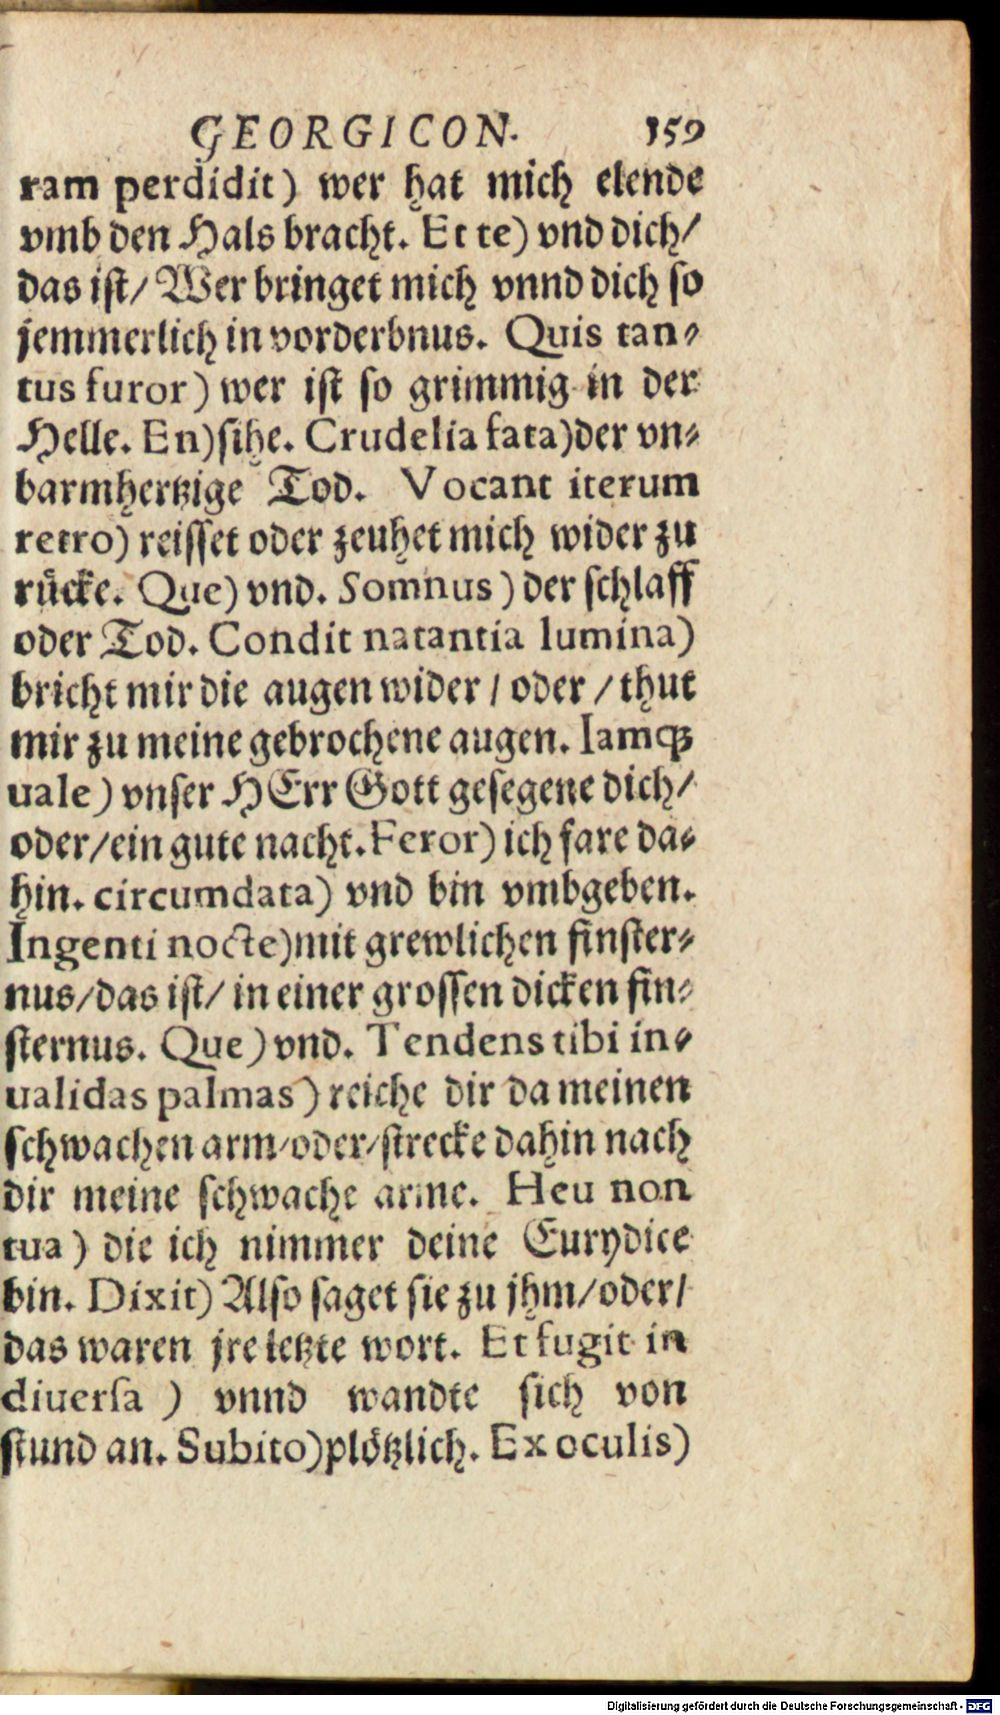 GEORGICON. 159
ram perdidit) wer hat mich elende
vmb den Hals bracht. Et te) vnd dich/
das ist/ Wer bringet mich vnnd dich so
jemmerlich in vorderbnus. Quis tan⸗
tus furor) wer ist so grimmig in der
Helle. En) sihe. Crudelia fata) der vn⸗
barmhertzige Tod. Vocant iterum
retro) reisset oder zeuhet mich wider zu
rücke. Que) vnd. Somnus) der schlaff
oder Tod. Condit natantia lumina)
bricht mir die augen wider / oder / thut
mir zu meine gebrochene augen. Iamqꝫ
uale) vnser HErr Gott gesegene dich/
oder/ ein gute nacht. Feror) ich fare da⸗
hin. circumdata) vnd bin vmbgeben.
Ingenti nocte) mit grewlichen finster⸗
nus/ das ist/ in einer grossen dicken fin⸗
sternus. Que) vnd. Tendens tibi in⸗
ualidas palmas) reiche dir da meinen
schwachen arm/ oder/ strecke dahin nach
dir meine schwache arme. Heu non
tua) die ich nimmer deine Eurydice
bin. Dixit) Also saget sie zu jhm/ oder/
das waren jre letzte wort. Et fugit in
diuersa) vnnd wandte sich von
stund an. Subito) plötzlich. Ex oculis)
Digitalisierung gefördert durch die Deutsche Forschungsgemeinschaft - DFG